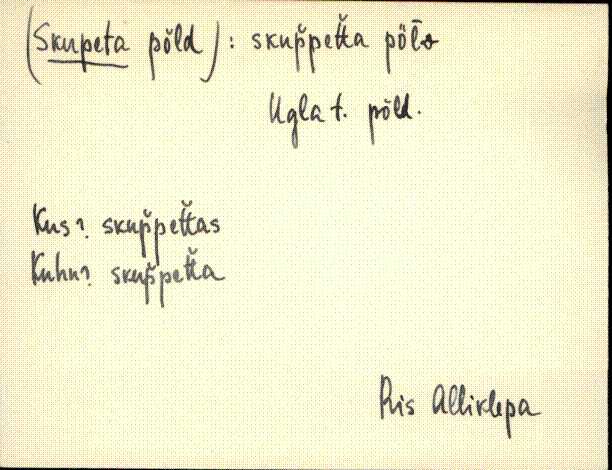 (Skupeta põld): skup̆pet̆ta põlo
Ugla t. põld.
Kus? skup̆pet̆tas
Kuhu? skup̆pet̆ta
Ris Alliklepa